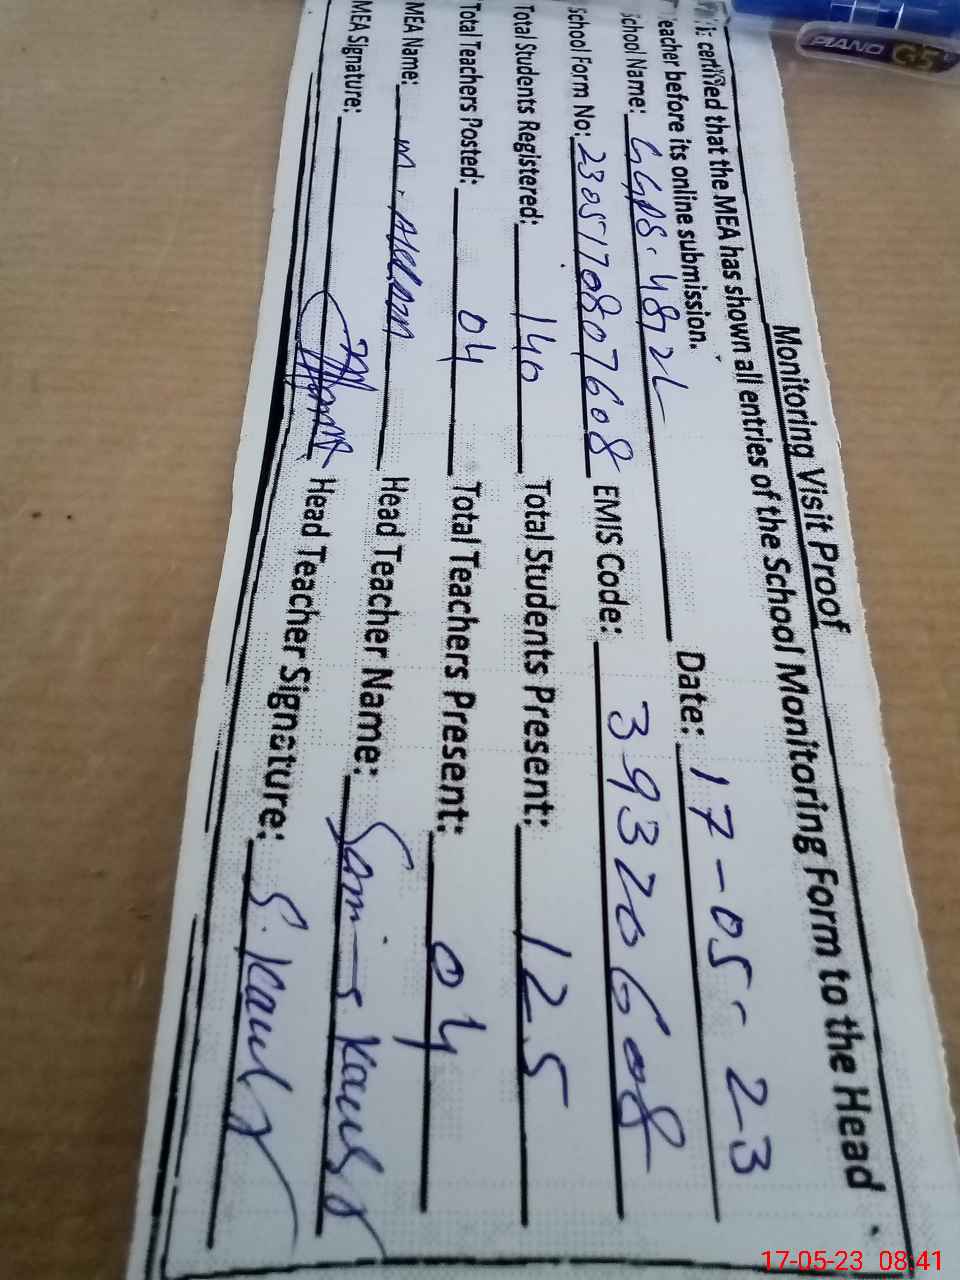 Monitoring Visit Proof
certified that the MEA has shown all entries of the School Monitoring Form to the Head
eacher before its online submission.
chool Name: GGPS. 48/2L Date: 17-05-23
School Form No: 2305170807608 EMIS Code: 39320608
Total Students Registered: 140 Total Students Present: 125
Total Teachers Posted: 04 Total Teachers Present: 04
MEA Name: M. Head Teacher Name: Kausar
MEA Signature: Head Teacher Signature: S. Kausar
PIANO G5
17-05-23 08:41